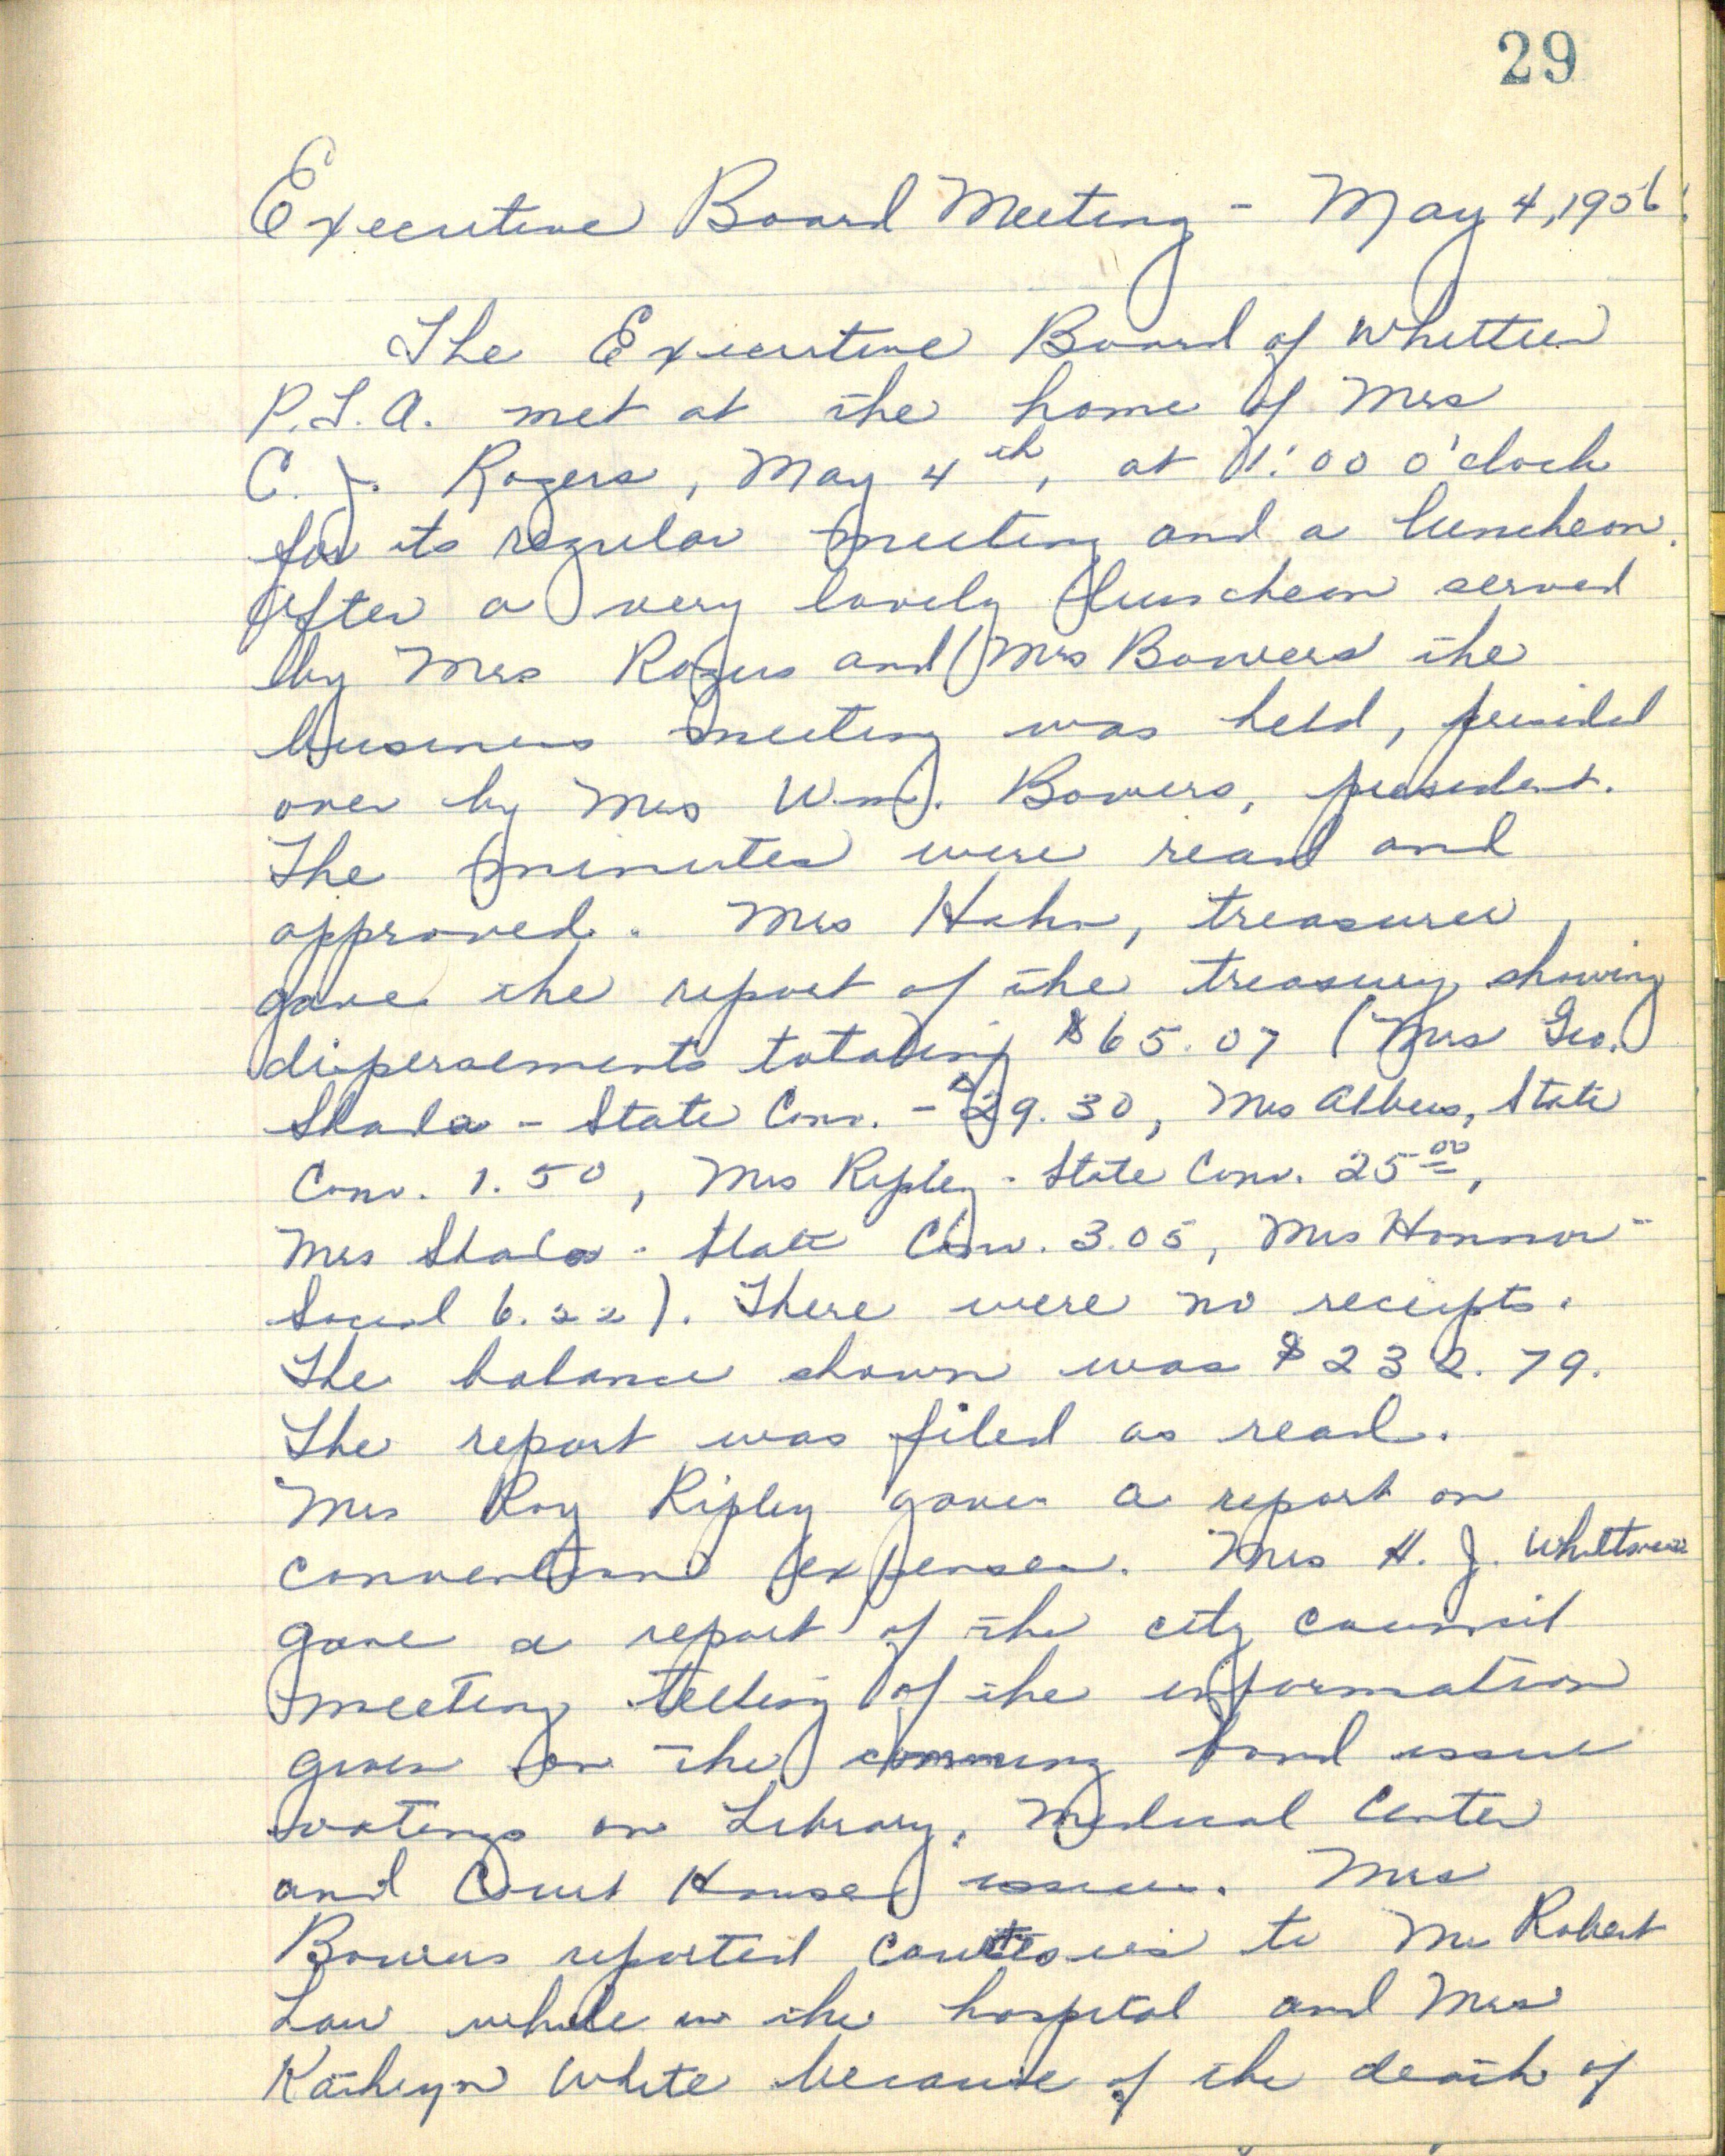 29
Executive Board Meeting - May 4, 1956
The Executive Board of Whittier
P.T.A. met at the home of Mrs
C. J. Rogers, May 4th, at 1:00 o'clock
for its regular meeting and a luncheon.
After a very lovely luncheon served
by Mrs Rogers and Mrs Bowers the
business meeting was held, presided
over by Mrs Wm. Bowers, president.
The minutes were read and
approved. Mrs Hahn, treasurer,
gave the report of the treasury showing
dispersements totaling $65.07 (Mrs Geo.
Skala - State Conv. - $29.30, Mrs Albers, State
Conv. 1.50, Mrs Ripley - State Conv. 25 00,
Mrs Skala - State Conv. 3.05, Mrs Honnor -
Social 6.22). There were no receipts.
The balance shown was $232.79.
The report was filed as read.
Mrs Roy Ripley gave a report on
convention expenses. Mrs H. J.
gave a report of the city council
meeting telling of the information
given on the comming bond issue
votings on Library, Medical Center
and Court House issues. Mrs
Bowers reported courtesies to Mr Robert
Law while in the hospital and Mrs
Kathryn White because of the death of